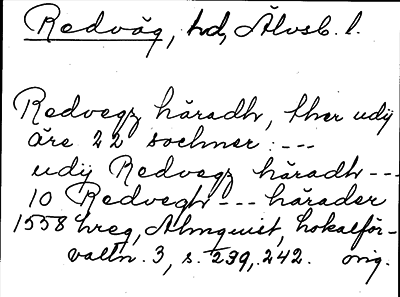 Redväg, hd, Älvsb. l.
Redvegz häradh, ther udij
äre 22 sochner: ---
udij Redvegz häradh ---
10 Redvegh --- härader
1558 hreg, Almquist, Lokalför-
valtn. 3, s. 239, 242. orig.